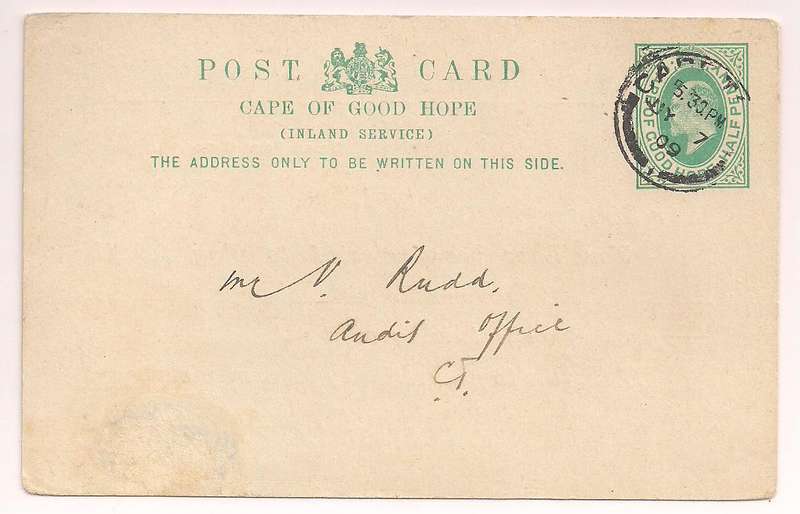 POST CARD
CAPE OF GOOD HOPE
(INLAND SERVICE)
THE ADDRESS ONLY TO BE WRITTEN ON THIS SIDE.
CAPE
5.30PM
JY 7
09
OF GOOD HOPE
HALF PE
Mr V. Rudd,
Audit Office
C.T.